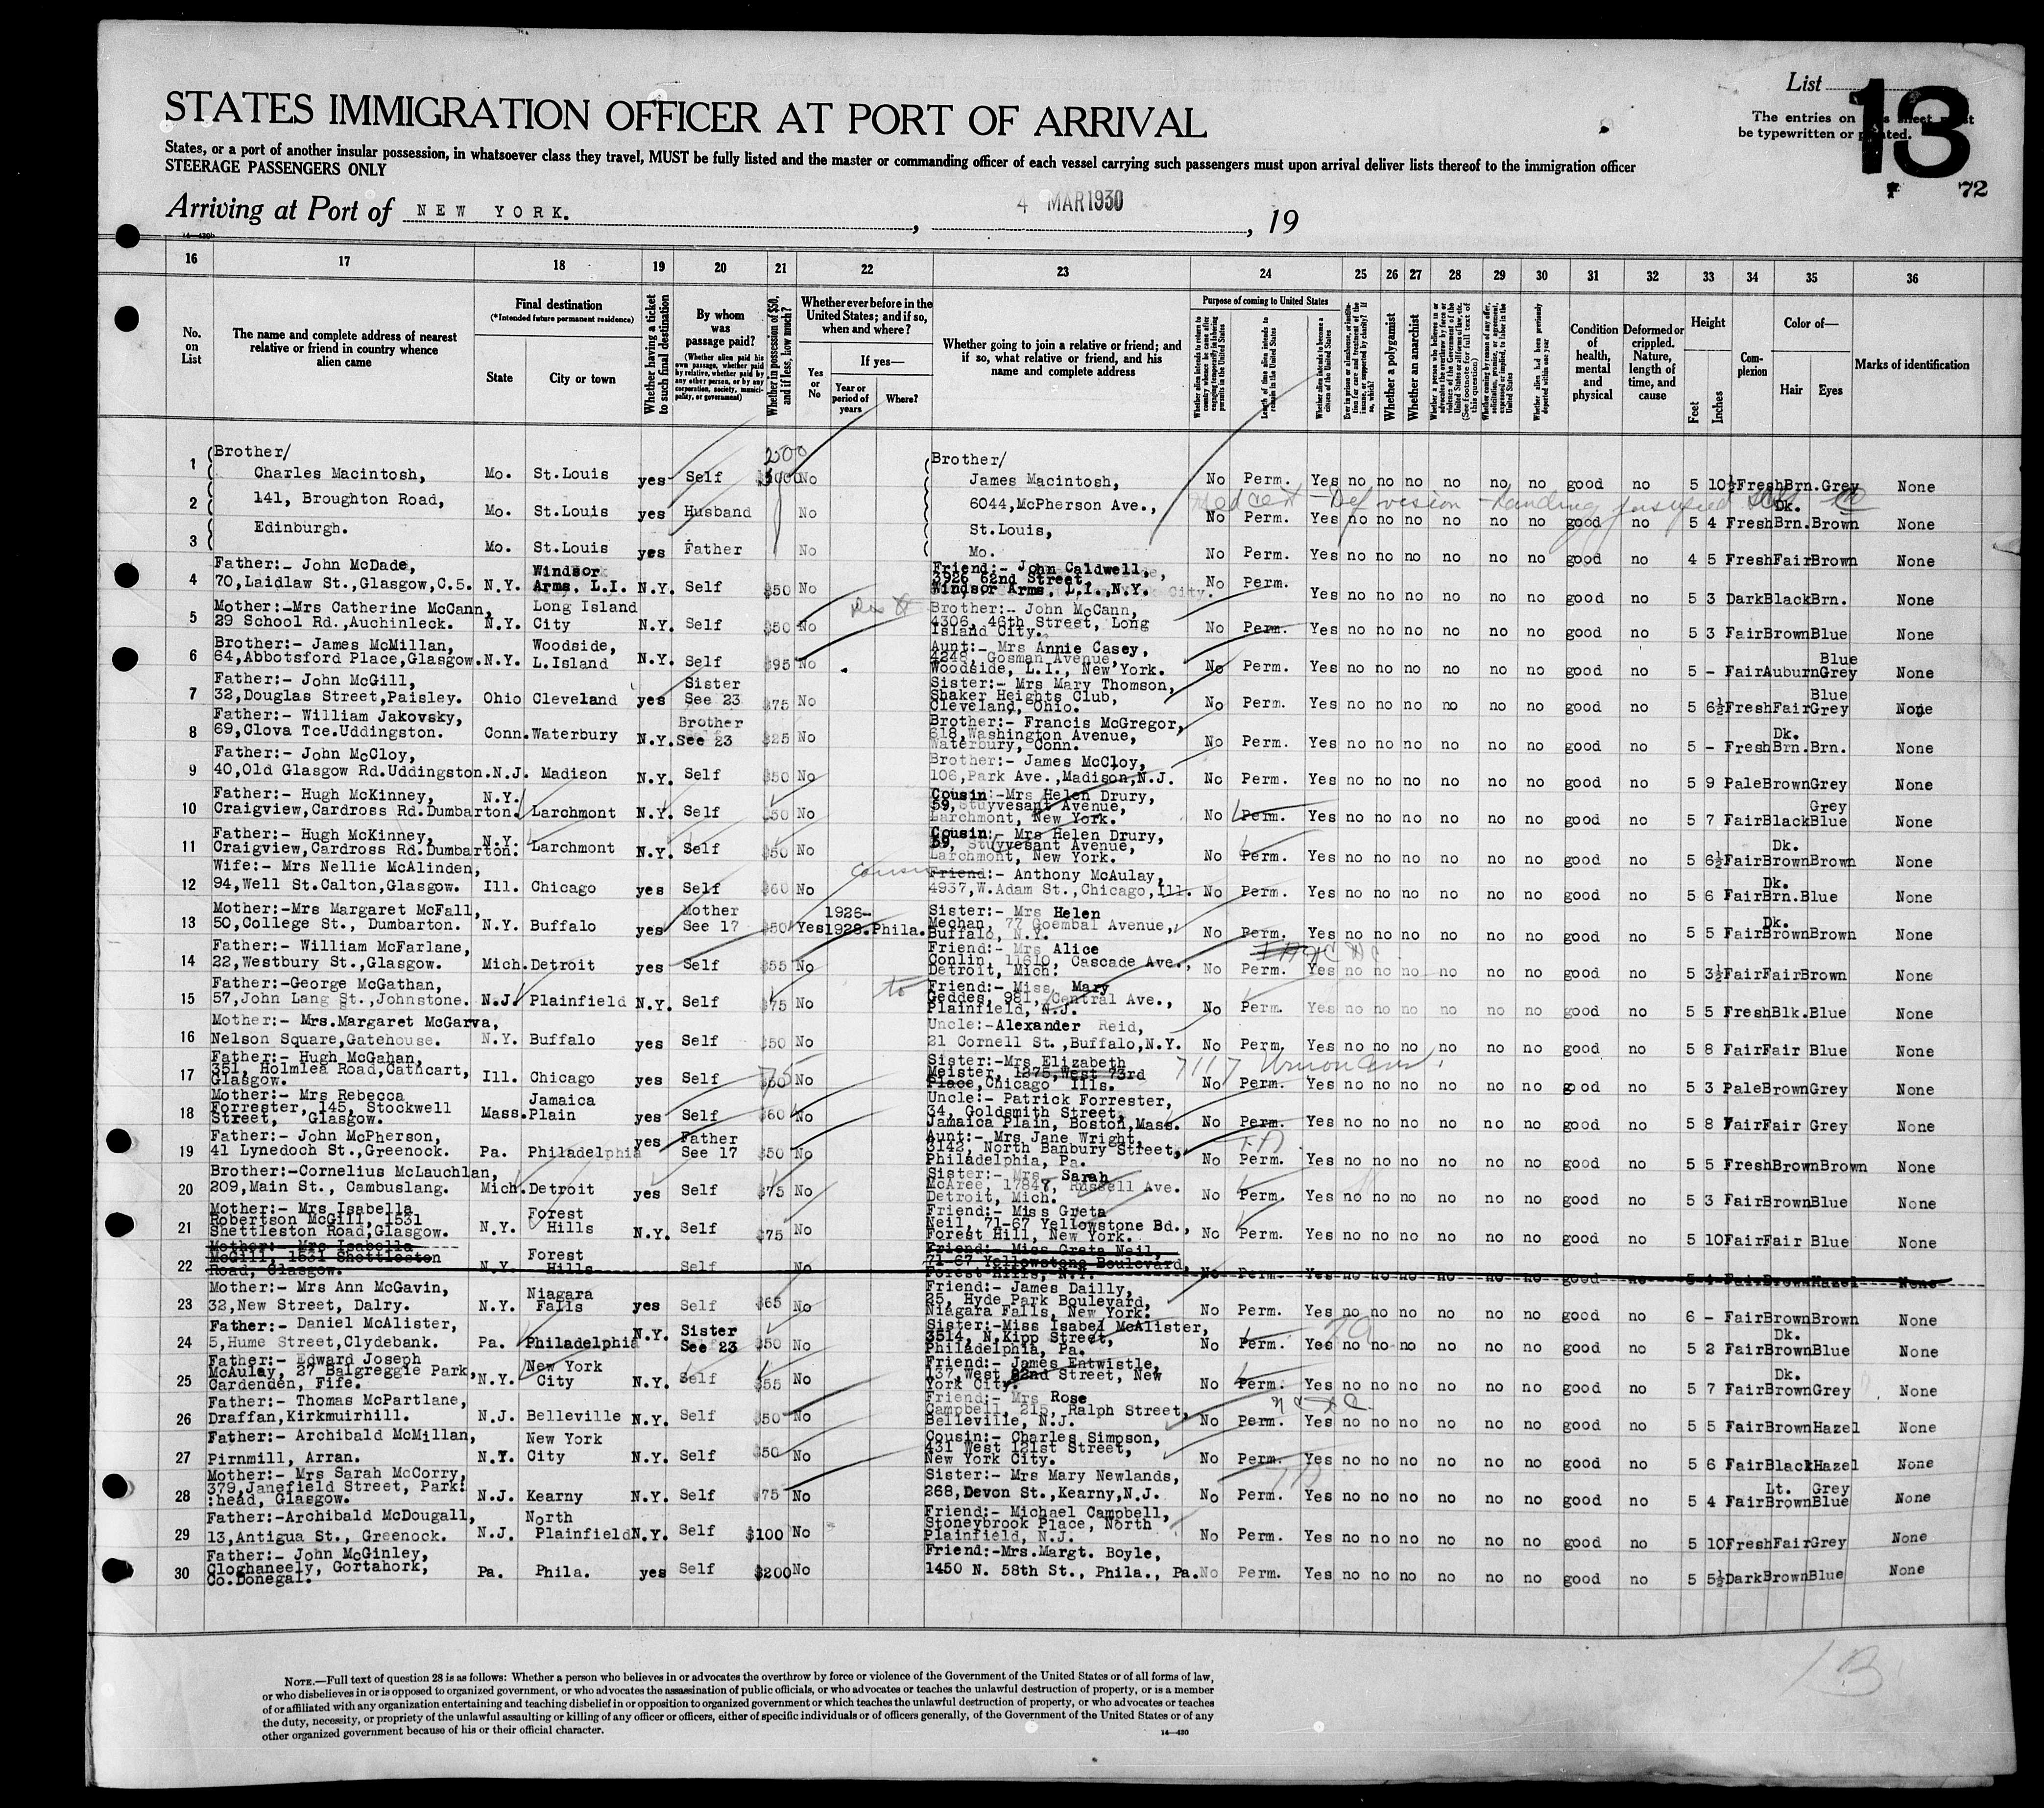 List
13
The entries on this sheet must
be typewritten or printed.
72
STATES IMMIGRATION OFFICER AT PORT OF ARRIVAL
States, or a port of another insular possession, in whatsoever class they travel, MUST be fully listed and the master or commanding officer of each vessel carrying such passengers must upon arrival deliver lists thereof to the immigration officer
STEERAGE PASSENGERS ONLY
Arriving at Port of NEW YORK. , 4 MAR 1930 , 19
16 17 18 19 20 21 22 23 24 25 26 27 28 29 30 31 32 33 34 35 36
No. on List
The name and complete address of nearest relative or friend in country whence alien came
Final destination
(*Intended future permanent residence)
State
City or town
Whether having a ticket to such final destination
By whom was passage paid?
(Whether alien paid his own passage, whether paid by relative, whether paid by any other person, or by any corporation, society, municipality, or government)
Whether in possession of $50, and if less, how much?
Whether ever before in the United States; and if so, when and where?
Yes or No
If yes—
Year or period of years
Where?
Whether going to join a relative or friend; and if so, what relative or friend, and his name and complete address
Purpose of coming to United States
Length of time alien intends to remain in the United States
Whether alien intends to become a citizen of the United States
Whether a polygamist
Whether an anarchist
Condition of health, mental and physical
Deformed or crippled. Nature, length of time, and cause
Height
Feet
Inches
Complexion
Color of—
Hair
Eyes
Marks of identification
1 Brother/ Charles Macintosh, Mo. St.Louis yes Self 200 No Brother/ James Macintosh, No Perm. Yes no no no no no no good no 5 10½ Fresh Brn. Grey None
2 141, Broughton Road, Mo. St.Louis yes Husband No 6044,McPherson Ave., St.Louis, No Perm. Yes no no no no no no good no 5 4 Fresh Dk. Brn. Brown None
3 Edinburgh. Mo. St.Louis yes Father No Mo. No Perm. Yes no no no no no no good no 4 5 Fresh Fair Brown None
4 Father:- John McDade, 70,Laidlaw St.,Glasgow,C.5. N.Y. Windsor Arms, L.I. N.Y. Self $50 No Friend:- John Caldwell, 3926 62nd Street, Windsor Arms, L.I.,N.Y. No Perm. Yes no no no no no no good no 5 3 Dark Black Brn. None
5 Mother:-Mrs Catherine McCann, 29 School Rd.,Auchinleck. N.Y. Long Island City N.Y. Self $50 No Brother:- John McCann, 4306, 46th Street, Long Island City. No Perm. Yes no no no no no no good no 5 3 Fair Brown Blue None
6 Brother:- James McMillan, 64,Abbotsford Place,Glasgow. N.Y. Woodside, L.Island N.Y. Self $95 No Aunt:- Mrs Annie Casey, 4248, Gosman Avenue, Woodside, L.I., New York. No Perm. Yes no no no no no no good no 5 - Fair Auburn Blue Grey None
7 Father:- John McGill, 32,Douglas Street,Paisley. Ohio Cleveland yes Sister See 23 $75 No Sister:- Mrs Mary Thomson, Shaker Heights Club, Cleveland, Ohio. No Perm. Yes no no no no no no good no 5 6½ Fresh Fair Blue Grey None
8 Father:- William Jakovsky, 69,Clova Tce.Uddingston. Conn. Waterbury N.Y. Brother See 23 $25 No Brother:- Francis McGregor, 618,Washington Avenue, Waterbury, Conn. No Perm. Yes no no no no no no good no 5 - Fresh Dk. Brn. Brn. None
9 Father:- John McCloy, 40,Old Glasgow Rd.Uddingston. N.J. Madison N.Y. Self $50 No Brother:- James McCloy, 106,Park Ave.,Madison,N.J. No Perm. Yes no no no no no no good no 5 9 Pale Brown Grey None
10 Father:- Hugh McKinney, Craigview,Cardross Rd.Dumbarton. N.Y. Larchmont N.Y. Self $50 No Cousin:-Mrs Helen Drury, 59,Stuyvesant Avenue, Larchmont, New York. No Perm. Yes no no no no no no good no 5 7 Fair Black Grey Blue None
11 Father:- Hugh McKinney, Craigview,Cardross Rd.Dumbarton. N.Y. Larchmont N.Y. Self $50 No Cousin:- Mrs Helen Drury, 59, Stuyvesant Avenue, Larchmont, New York. No Perm. Yes no no no no no no good no 5 6½ Fair Dk. Brown Brown None
12 Wife:- Mrs Nellie McAlinden, 94,Well St.Calton,Glasgow. Ill. Chicago yes Self $60 No cousin Friend:- Anthony McAulay, 4937,W.Adam St.,Chicago,Ill. No Perm. Yes no no no no no no good no 5 6 Fair Dk. Brn. Blue None
13 Mother:-Mrs Margaret McFall, 50,College St., Dumbarton. N.Y. Buffalo yes Mother See 17 $50 Yes 1926-1928. Phila. Sister:- Mrs Helen Mechan, 77 Goembal Avenue, Buffalo, N.Y. No Perm. Yes no no no no no no good no 5 5 Fair Dk. Brown Brown None
14 Father:- William McFarlane, 22,Westbury St.,Glasgow. Mich. Detroit yes Self $55 No Friend:- Mrs Alice Conlin, 11610, Cascade Ave., Detroit, Mich. No Perm. Yes no no no no no no good no 5 3½ Fair Fair Brown None
15 Father:-George McGathan, 57,John Lang St.,Johnstone. N.J. Plainfield N.Y. Self $75 No Friend:- Miss Mary Geddes, 981, Central Ave., Plainfield, N.J. No Perm. Yes no no no no no no good no 5 5 Fresh Blk. Blue None
16 Mother:- Mrs.Margaret McGarva, Nelson Square,Gatehouse. N.Y. Buffalo yes Self $50 No Uncle:-Alexander Reid, 21 Cornell St.,Buffalo,N.Y. No Perm. Yes no no no no no no good no 5 8 Fair Fair Blue None
17 Father:- Hugh McGahan, 351, Holmlea Road,Cathcart, Glasgow. Ill. Chicago yes Self 75 No Sister:-Mrs Elizabeth Meister, 1275,West 73rd Place,Chicago Ills. 7117 Union No Perm. Yes no no no no no no good no 5 3 Pale Brown Grey None
18 Mother:- Mrs Rebecca Forrester, 145, Stockwell Street, Glasgow. Mass. Jamaica Plain yes Self $60 No Uncle:- Patrick Forrester, 34, Goldsmith Street, Jamaica Plain, Boston,Mass. No Perm. Yes no no no no no no good no 5 8 Fair Fair Grey None
19 Father:- John McPherson, 41 Lynedoch St.,Greenock. Pa. Philadelphia yes Father See 17 $50 No Aunt:- Mrs Jane Wright, 3142, North Banbury Street, Philadelphia, Pa. No Perm. Yes no no no no no no good no 5 5 Fresh Brown Brown None
20 Brother:-Cornelius McLauchlan, 209,Main St., Cambuslang. Mich. Detroit yes Self $75 No Sister:- Mrs Sarah McAree, 17847, Russell Ave. Detroit, Mich. No Perm. Yes no no no no no no good no 5 3 Fair Brown Blue None
21 Mother:- Mrs Isabella Robertson McGill, 1531 Shettleston Road,Glasgow. N.Y. Forest Hills N.Y. Self $75 No Friend:- Miss Greta Neil, 71-67 Yellowstone Bd., Forest Hill, New York. No Perm. Yes no no no no no no good no 5 10 Fair Fair Blue None
22 Mother:- Mrs Isabella McGill, 1531 Shettleston Road, Glasgow. N.Y. Forest Hills Self No Friend:- Miss Greta Neil, 71-67 Yellowstone Boulevard, Forest Hills, N.Y. No Perm. Yes no no no no no no good no Fair Brown Hazel None
23 Mother:- Mrs Ann McGavin, 32,New Street, Dalry. N.Y. Niagara Falls yes Self $65 No Friend:- James Dailly, 25, Hyde Park Boulevard, Niagara Falls, New York. No Perm. Yes no no no no no no good no 6 - Fair Brown Brown None
24 Father:- Daniel McAlister, 5,Hume Street,Clydebank. Pa. Philadelphia N.Y. Sister See 23 $50 No Sister:-Miss Isabel McAlister, 3514, N.Kipp Street, Philadelphia, Pa. No Perm. Yes no no no no no no good no 5 2 Fair Dk. Brown Blue None
25 Father:- Edward Joseph McAulay, 27 Balgreggie Park, Cardenden, Fife. N.Y. New York City N.Y. Self $55 No Friend:- James Entwistle, 137,West 82nd Street, New York City. No Perm. Yes no no no no no no good no 5 7 Fair Dk. Brown Grey None
26 Father:- Thomas McPartlane, Draffan,Kirkmuirhill. N.J. Belleville N.Y. Self $50 No Friend:- Mrs Rose Campbell, 215, Ralph Street, Belleville, N.J. No Perm. Yes no no no no no no good no 5 5 Fair Brown Hazel None
27 Father:- Archibald McMillan, Pirnmill, Arran. N.Y. New York City N.Y. Self $50 No Cousin:- Charles Simpson, 431 West 121st Street, New York City. No Perm. Yes no no no no no no good no 5 6 Fair Black Hazel None
28 Mother:- Mrs Sarah McCorry, 379,Janefield Street, Park: :head, Glasgow. N.J. Kearny N.Y. Self $75 No Sister:- Mrs Mary Newlands, 268,Devon St.,Kearny,N.J. No Perm. Yes no no no no no no good no 5 4 Fair Lt. Brown Grey Blue None
29 Father:-Archibald McDougall, 13,Antigua St., Greenock. N.J. North Plainfield N.Y. Self $100 No Friend:- Michael Campbell, Stoneybrook Place, North Plainfield, N.J. No Perm. Yes no no no no no no good no 5 10 Fresh Fair Grey None
30 Father:- John McGinley, Cloghaneely, Gortahork, Co.Donegal. Pa. Phila. yes Self $200 No Friend:-Mrs.Margt. Boyle, 1450 N. 58th St., Phila., Pa. No Perm. Yes no no no no no no good no 5 5½ Dark Brown Blue None
NOTE.—Full text of question 28 is as follows: Whether a person who believes in or advocates the overthrow by force or violence of the Government of the United States or of all forms of law,
or who disbelieves in or is opposed to organized government, or who advocates the assassination of public officials, or who advocates or teaches the unlawful destruction of property, or is a member
of or affiliated with any organization entertaining and teaching disbelief in or opposition to organized government or which teaches the unlawful destruction of property, or who advocates or teaches
the duty, necessity, or propriety of the unlawful assaulting or killing of any officer or officers, either of specific individuals or of officers generally, of the Government of the United States or of any
other organized government because of his or their official character.
14—430